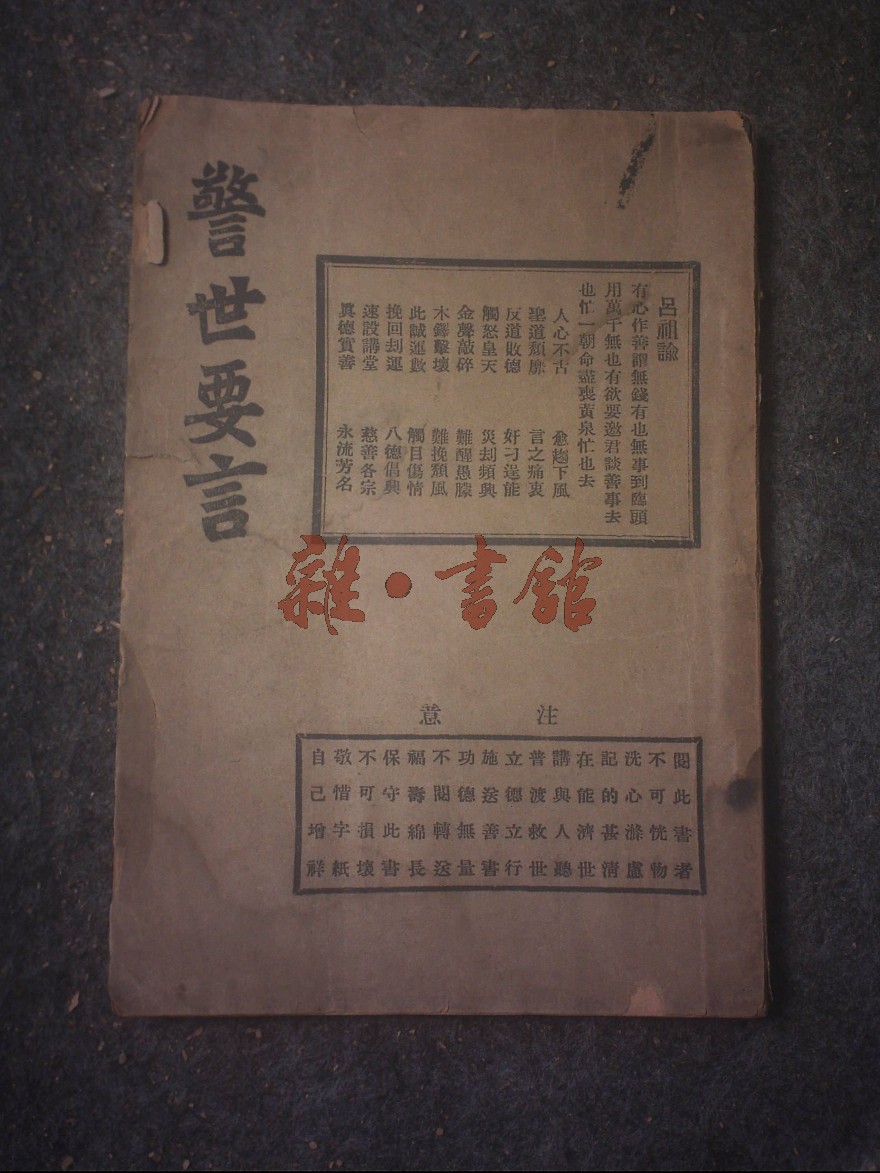 警世要言
呂祖諭
有心作善謂無錢有也無事到臨頭
用萬千無也有欲要邀君談善事去
也忙一朝命盡喪黃泉忙也去
人心不古 愈趨下風
聖道頹靡 言之痛衷
反道敗德 奸刁逞能
觸怒皇天 災刦頻興
金聲敲碎 難醒愚朦
木鐸擊壞 難挽頹風
此誠運數 觸目傷情
挽回刦運 八德倡興
速設講堂 慈善各宗
眞德實善 永流芳名
雜·書館
注意
閱此書者
不可恍物
洗心滌慮
記的甚清
在能濟世
講與人聽
普渡救世
立德立行
施送善書
功德無量
不閱轉送
福壽綿長
保守此書
不可損壞
敬惜字紙
自己增祥